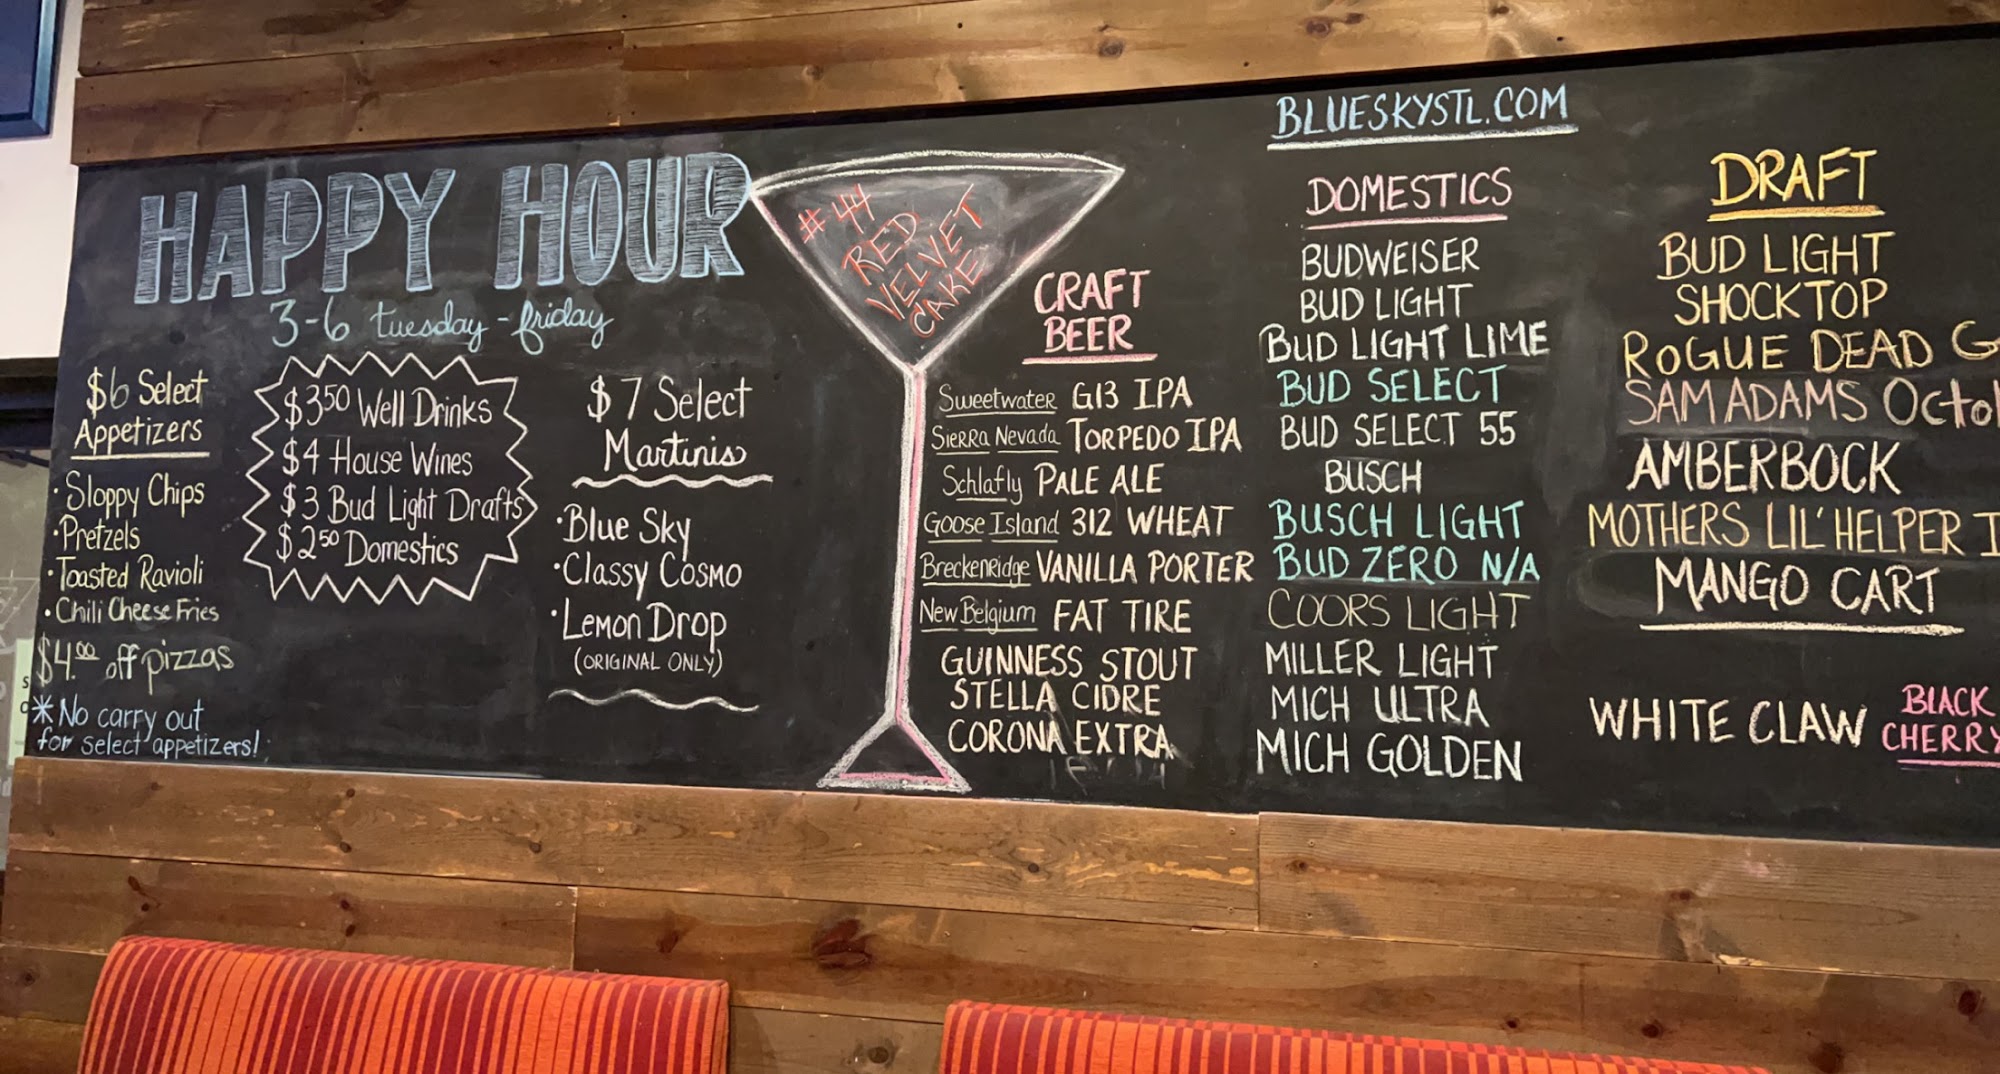 HAPPY HOUR
3-6 tuesday - friday
$6 Select
Appetizers
· Sloppy Chips
· Pretzels
· Toasted Ravioli
· Chili Cheese Fries
$4.00 off pizzas
* No carry out
for select appetizers!
$3.50 Well Drinks
$4 House Wines
$3 Bud Light Drafts
$2.50 Domestics
$7 Select
Martinis
· Blue Sky
· Classy Cosmo
· Lemon Drop
(ORIGINAL ONLY)
#44
RED
VELVET
CAKE
CRAFT
BEER
Sweetwater G13 IPA
Sierra Nevada TORPEDO IPA
Schlafly PALE ALE
Goose Island 312 WHEAT
Breckenridge VANILLA PORTER
New Belgium FAT TIRE
GUINNESS STOUT
STELLA CIDRE
CORONA EXTRA
BLUESKYSTL.COM
DOMESTICS
BUDWEISER
BUD LIGHT
BUD LIGHT LIME
BUD SELECT
BUD SELECT 55
BUSCH
BUSCH LIGHT
BUD ZERO N/A
COORS LIGHT
MILLER LIGHT
MICH ULTRA
MICH GOLDEN
DRAFT
BUD LIGHT
SHOCKTOP
ROGUE DEAD G
SAM ADAMS Octo
AMBERBOCK
MOTHERS LIL' HELPER I
MANGO CART
WHITE CLAW BLACK
CHERRY